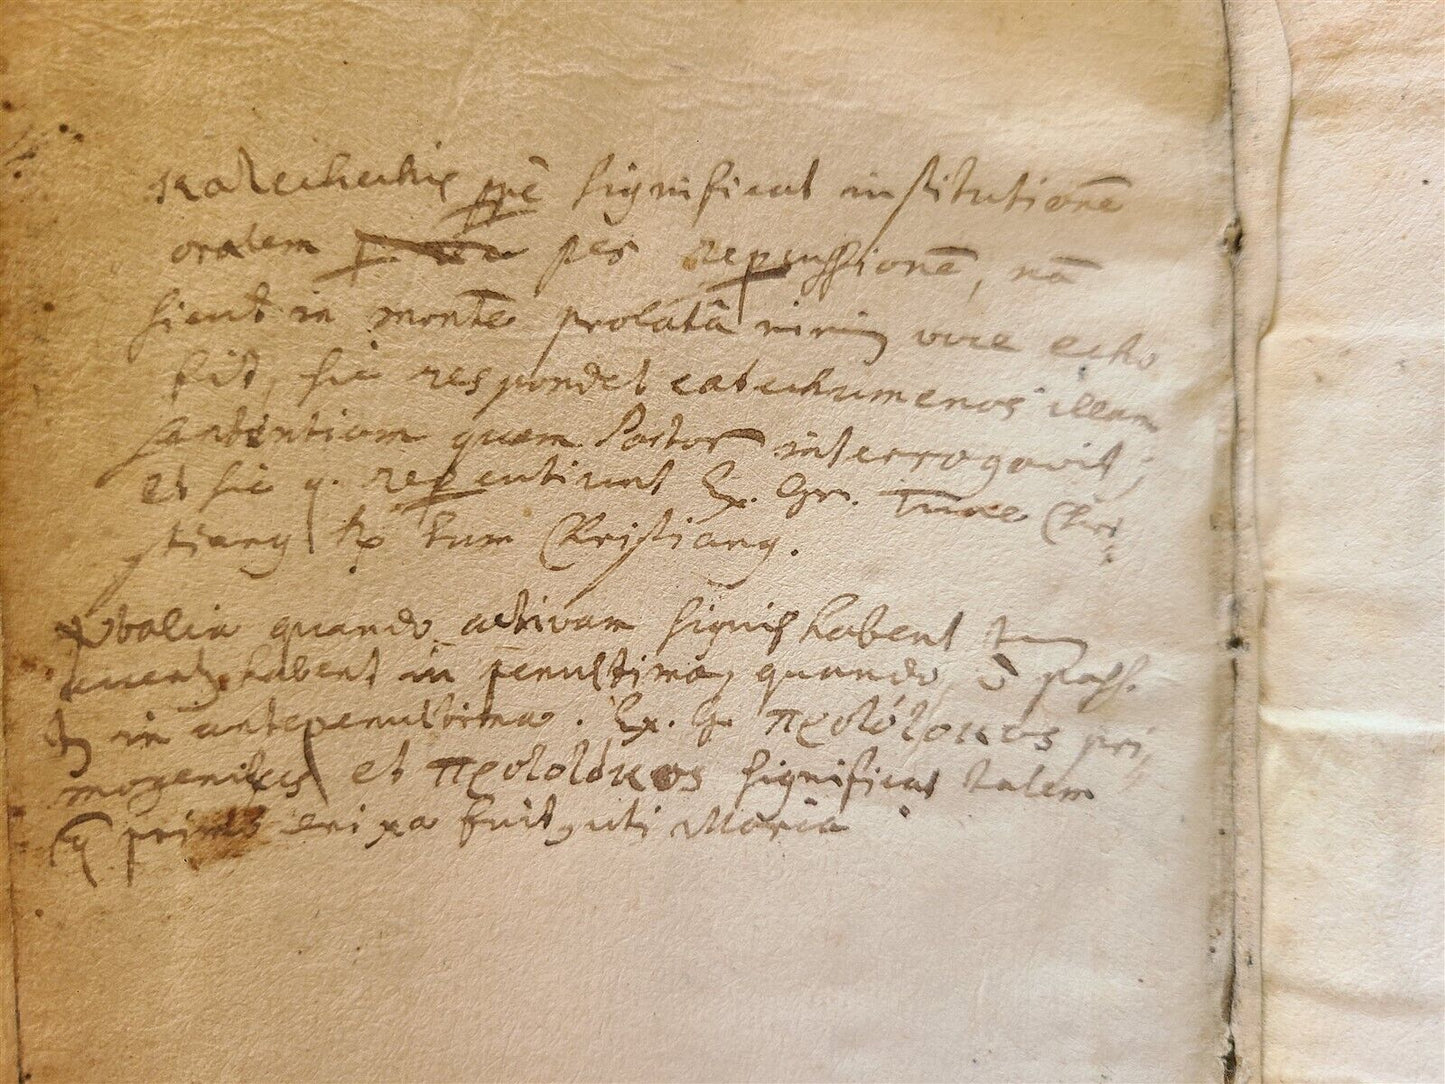 Katechechis ppē significat institutionē
oralem per repercussionē, nā
sicut in monte prolatâ voce echo
fit, sic respondet catechumenos illam
sententiam quam Pastor interrogavit;
et sic q. repercutiunt Ex. Gr. Tune Chri
stiang Rx tum Christiang.
Vbalia quando activam signif habent
habent in penultima, quando ō pass.
in antepenultima. Ex. Gr πρωτότοκος pri
mogenitus et πρωτοτόκος significat talem
q primo enixa fuit, uti Maria